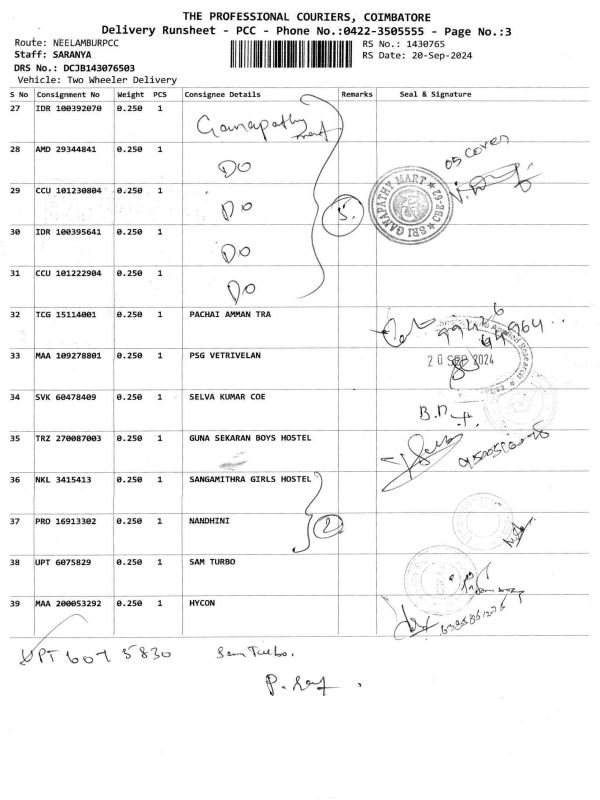 THE PROFESSIONAL COURIERS, COIMBATORE
Delivery Runsheet - PCC - Phone No.:0422-3505555 - Page No.:3
Route: NEELAMBURPCC
RS No.: 1430765
Staff: SARANYA
RS Date: 20-Sep-2024
DRS No.: DCJB143076503
Vehicle: Two Wheeler Delivery
S No Consignment No Weight PCS Consignee Details Remarks Seal & Signature
27 IDR 100392070 0.250 1 Ganapathy
28 AMD 29344841 0.250 1 DO
05 Cover
29 CCU 101230804 0.250 1 DO 5. SRI GANAPATHY MART CBE-62
30 IDR 100395641 0.250 1 DO
31 CCU 101222904 0.250 1 DO
32 TCG 15114001 0.250 1 PACHAI AMMAN TRA
33 MAA 109278801 0.250 1 PSG VETRIVELAN 20 SEP 2024
34 SVK 60478409 0.250 1 SELVA KUMAR COE
35 TRZ 270087003 0.250 1 GUNA SEKARAN BOYS HOSTEL
36 NKL 3415413 0.250 1 SANGAMITHRA GIRLS HOSTEL
37 PRO 16913302 0.250 1 NANDHINI 2
38 UPT 6075829 0.250 1 SAM TURBO
39 MAA 200053292 0.250 1 HYCON
UPT 607 5830 Sam Turbo.